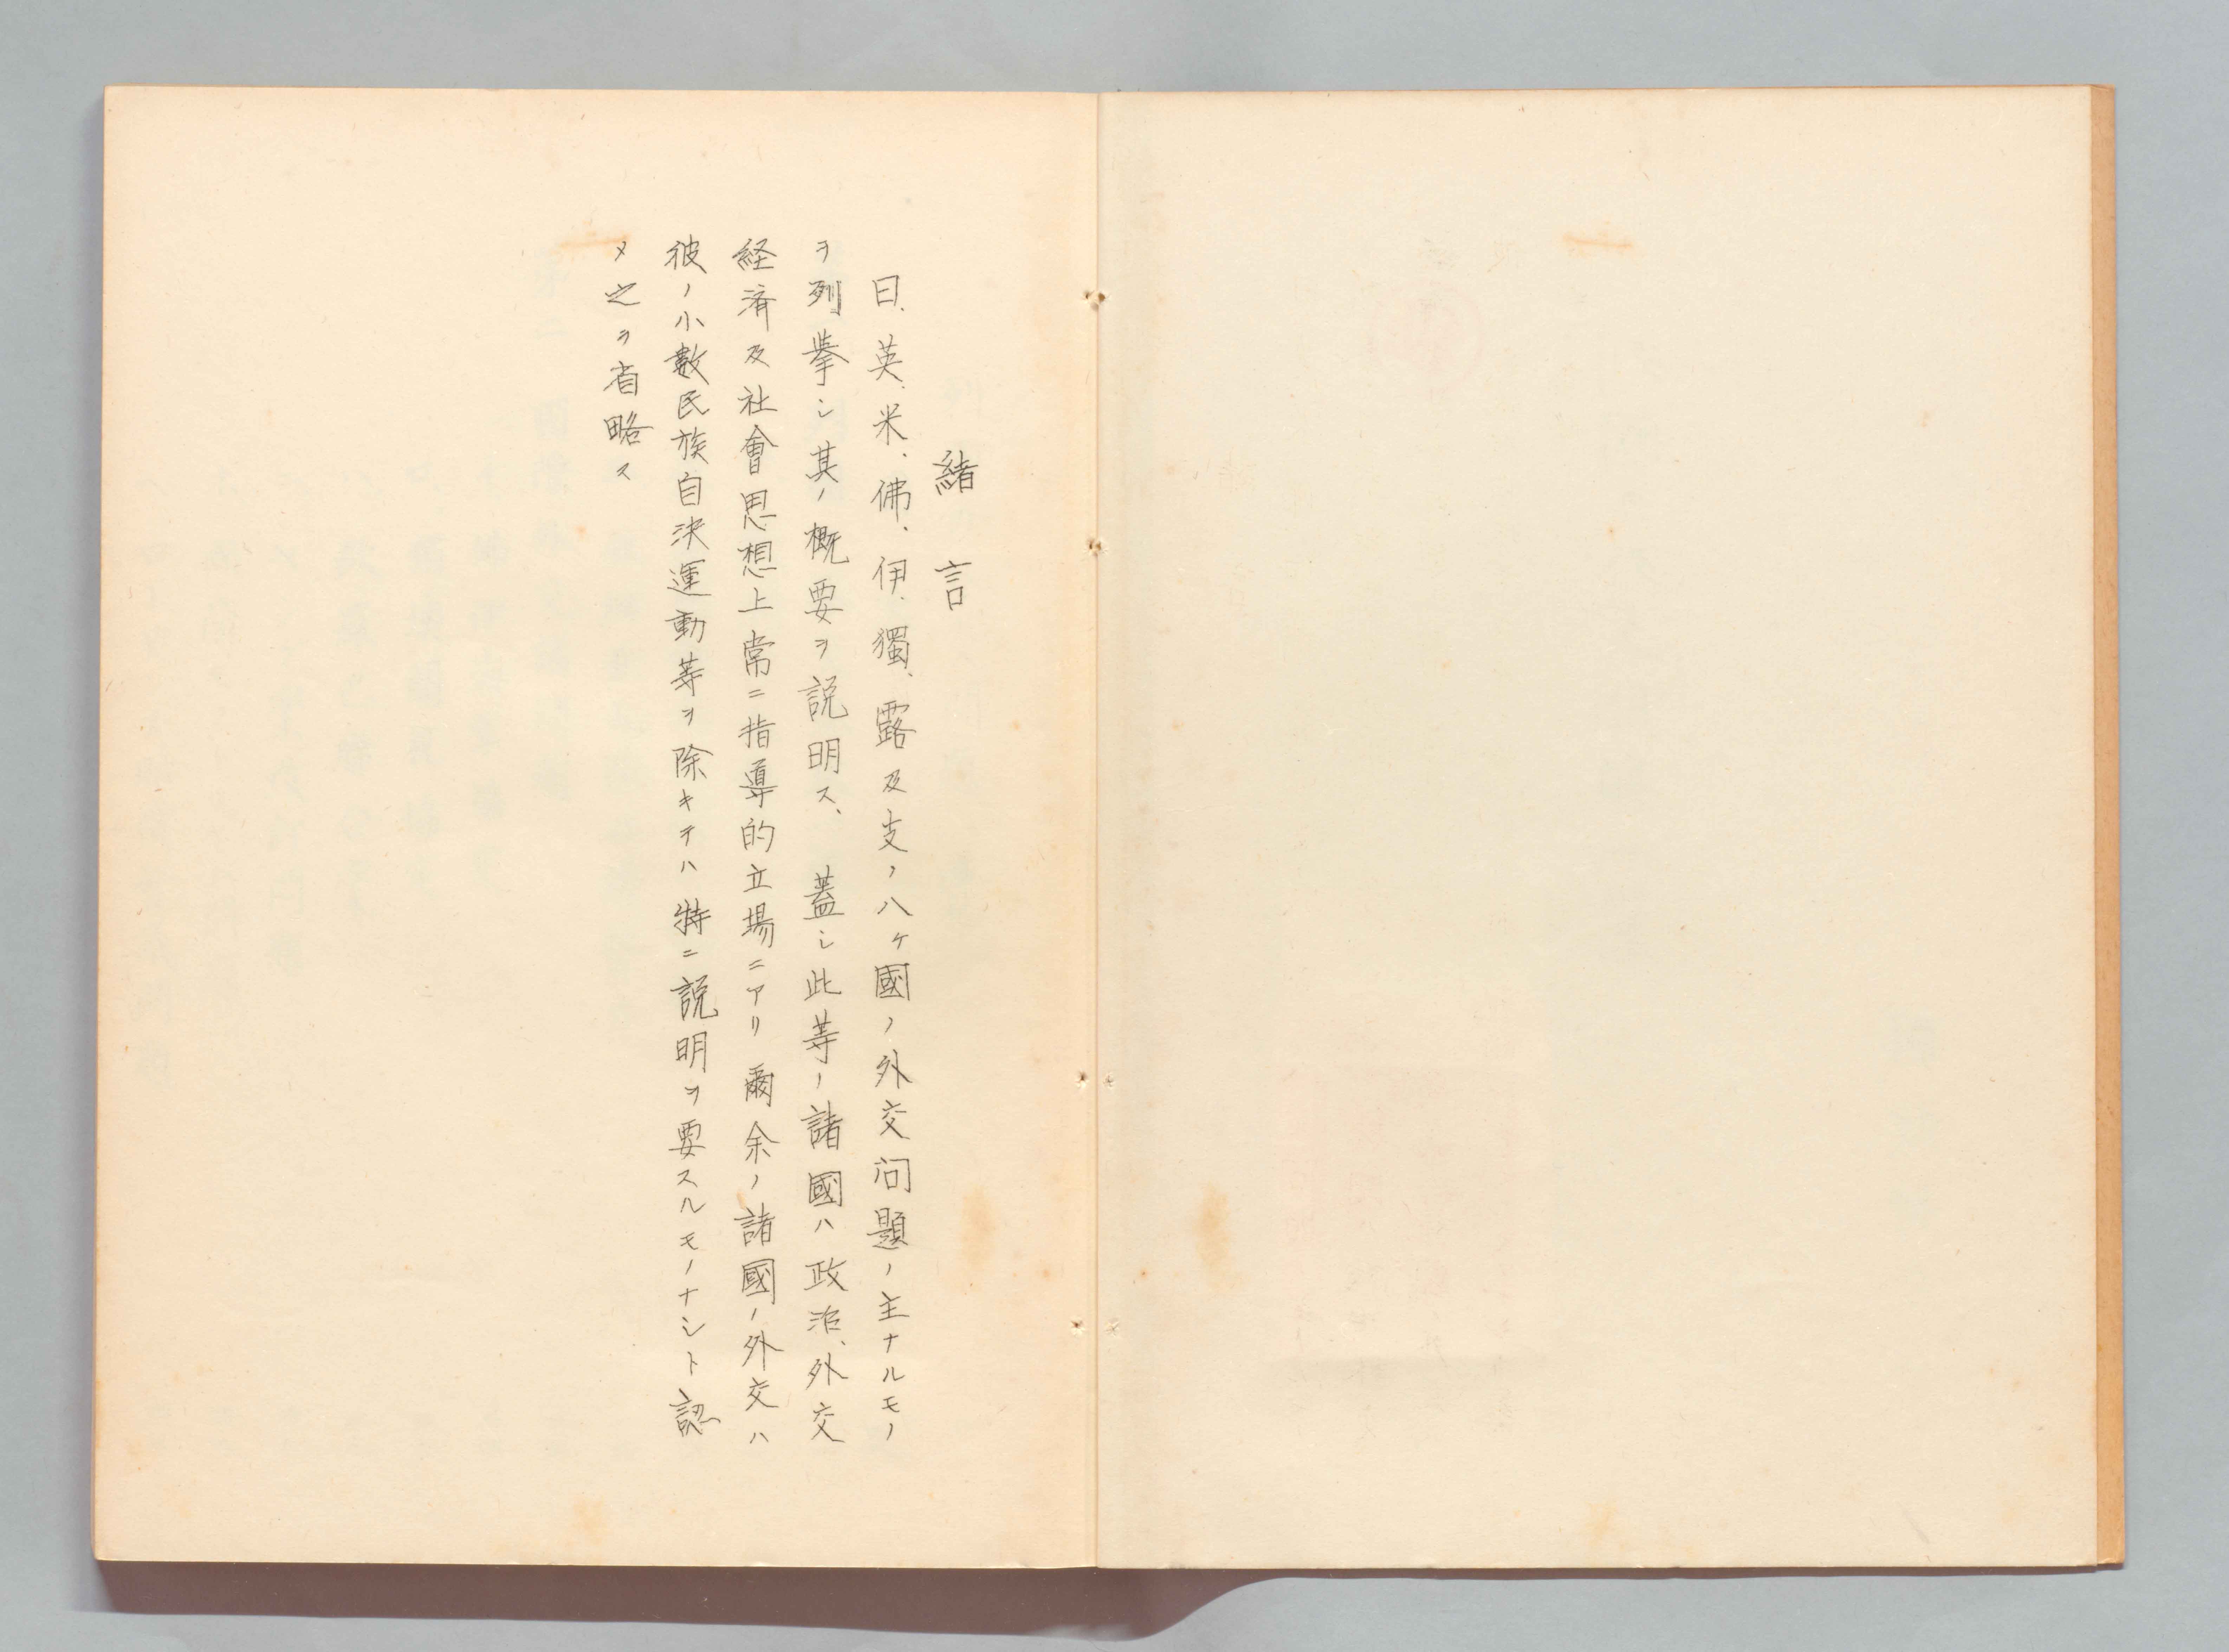 緒言
日、英、米、佛、伊、獨、露及支ノ八ヶ國ノ外交问題ノ主ナルモノ
ヲ列挙シ其ノ概要ヲ説明ス、蓋シ此等ノ諸國ハ政治、外交
経済及社會思想上常ニ指導的立場ニアリ爾余ノ諸國ノ外交ハ
彼ノ小數民族自決運動等ヲ除キテハ特ニ説明ヲ要スルモノナシト認
メ之ヲ省略ス